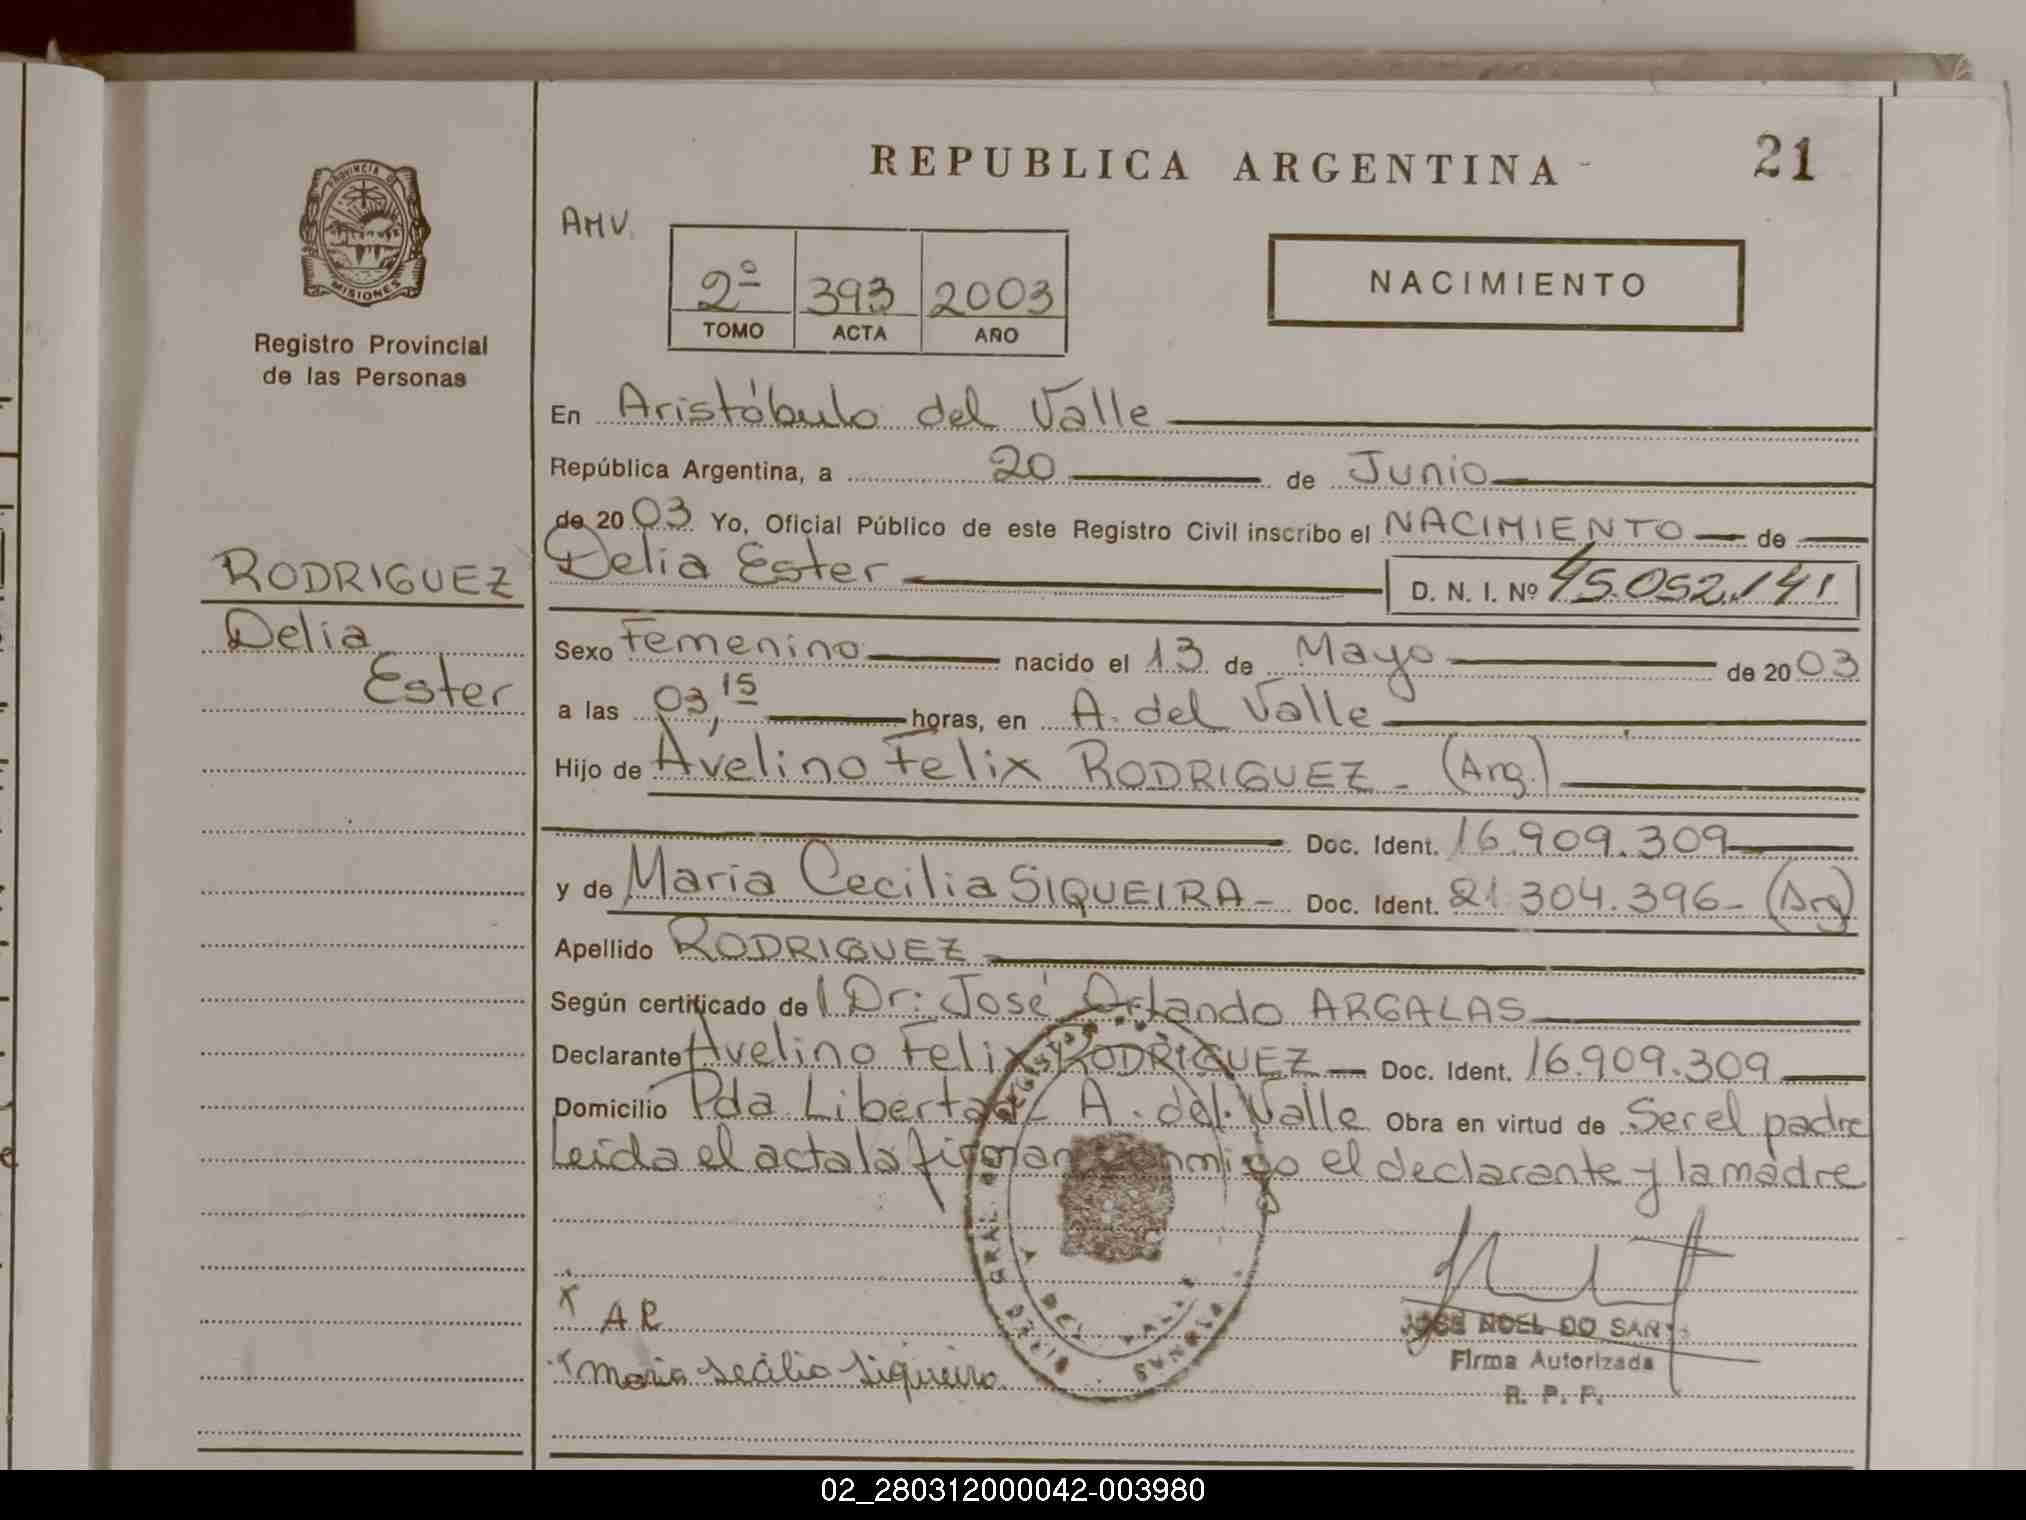 REPUBLICA ARGENTINA
21
PROVINCIA DE
MISIONES
Registro Provincial
de las Personas
AMV.
2º 393 2003
TOMO ACTA AÑO
NACIMIENTO
En Aristóbulo del Valle
República Argentina, a 20 de Junio
de 2003 Yo, Oficial Público de este Registro Civil inscribo el NACIMIENTO de
RODRIGUEZ
Delia
Ester
Delia Ester D. N. I. Nº 45.052.141
Sexo Femenino nacido el 13 de Mayo de 2003
a las 03,15 horas, en A. del Valle
Hijo de Avelino Felix RODRIGUEZ - (Arg.)
Doc. Ident. 16.909.309
y de Maria Cecilia SIQUEIRA - Doc. Ident. 21.304.396- (Arg)
Apellido RODRIGUEZ
Según certificado de l Dr: José Orlando ARGALAS
Declarante Avelino Felix RODRIGUEZ Doc. Ident. 16.909.309
Domicilio Pda Libertad - A. del Valle Obra en virtud de Ser el padre
Leída el acta la firman conmigo el declarante y la madre
x AR
x Maria Secilia Siqueira
A DEL VALLE
JOSE NOEL DO SANT
Firma Autorizada
R. P. P.
02_280312000042-003980